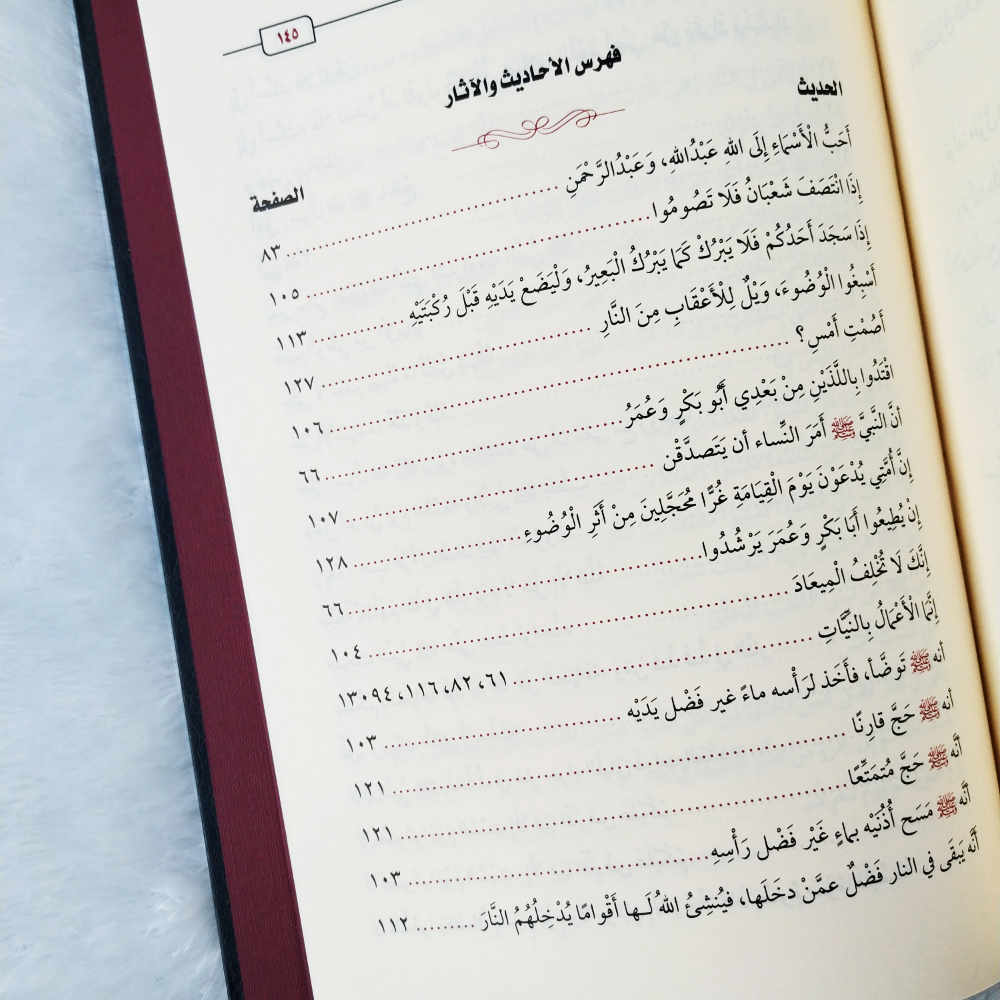 ١٤٥
فهرس الأحاديث والآثار
الحديث
الصفحة
أَحَبُّ الْأَسْمَاءِ إِلَى اللهِ عَبْدُاللهِ، وَعَبْدُالرَّحْمَنِ ........ ٨٣
إِذَا انْتَصَفَ شَعْبَانُ فَلَا تَصُومُوا ........ ١٠٥
إِذَا سَجَدَ أَحَدُكُمْ فَلَا يَبْرُكْ كَمَا يَبْرُكُ الْبَعِيرُ، وَلْيَضَعْ يَدَيْهِ قَبْلَ رُكْبَتَيْهِ ........ ١١٣
أَسْبِغُوا الْوُضُوءَ، وَيْلٌ لِلْأَعْقَابِ مِنَ النَّارِ ........ ١٢٧
أَصُمْتِ أَمْسِ؟ ........ ١٠٦
اقْتَدُوا بِاللَّذَيْنِ مِنْ بَعْدِي أَبُو بَكْرٍ وَعُمَرُ ........ ٦٦
أنَّ النَّبيَّ ﷺ أَمَرَ النِّساء أن يَتَصدَّقْن ........ ١٠٧
إِنَّ أُمَّتِي يُدْعَوْنَ يَوْمَ الْقِيَامَةِ غُرًّا مُحَجَّلِينَ مِنْ أَثَرِ الْوُضُوءِ ........ ١٢٨
إِنْ يُطِيعُوا أَبَا بَكْرٍ وَعُمَرَ يَرْشُدُوا ........ ٦٦
إِنَّكَ لَا تُخْلِفُ الْمِيعَادَ ........ ١٠٤
إِنَّمَا الْأَعْمَالُ بِالنِّيَّاتِ ........ ٦١، ٨٢، ١١٦، ١٣٠٩٤
أنه ﷺ تَوَضَّأ، فأَخَذ لرَأْسه ماءً غير فَضْل يَدَيْه ........ ١٠٣
أنه ﷺ حَجَّ قارِنًا ........ ١٢١
أنَّه ﷺ حَجَّ مُتمَتِّعًا ........ ١٢١
أنَّه ﷺ مَسَح أُذُنَيْه بماءٍ غَيْر فَضْل رَأْسِهِ ........ ١٠٣
أنَّه يَبقَى في النار فَضْلٌ عمَّنْ دخَلَها، فيُنشِئُ اللهُ لَـها أَقْوامًا يُدْخِلُهُمُ النَّارَ ........ ١١٢